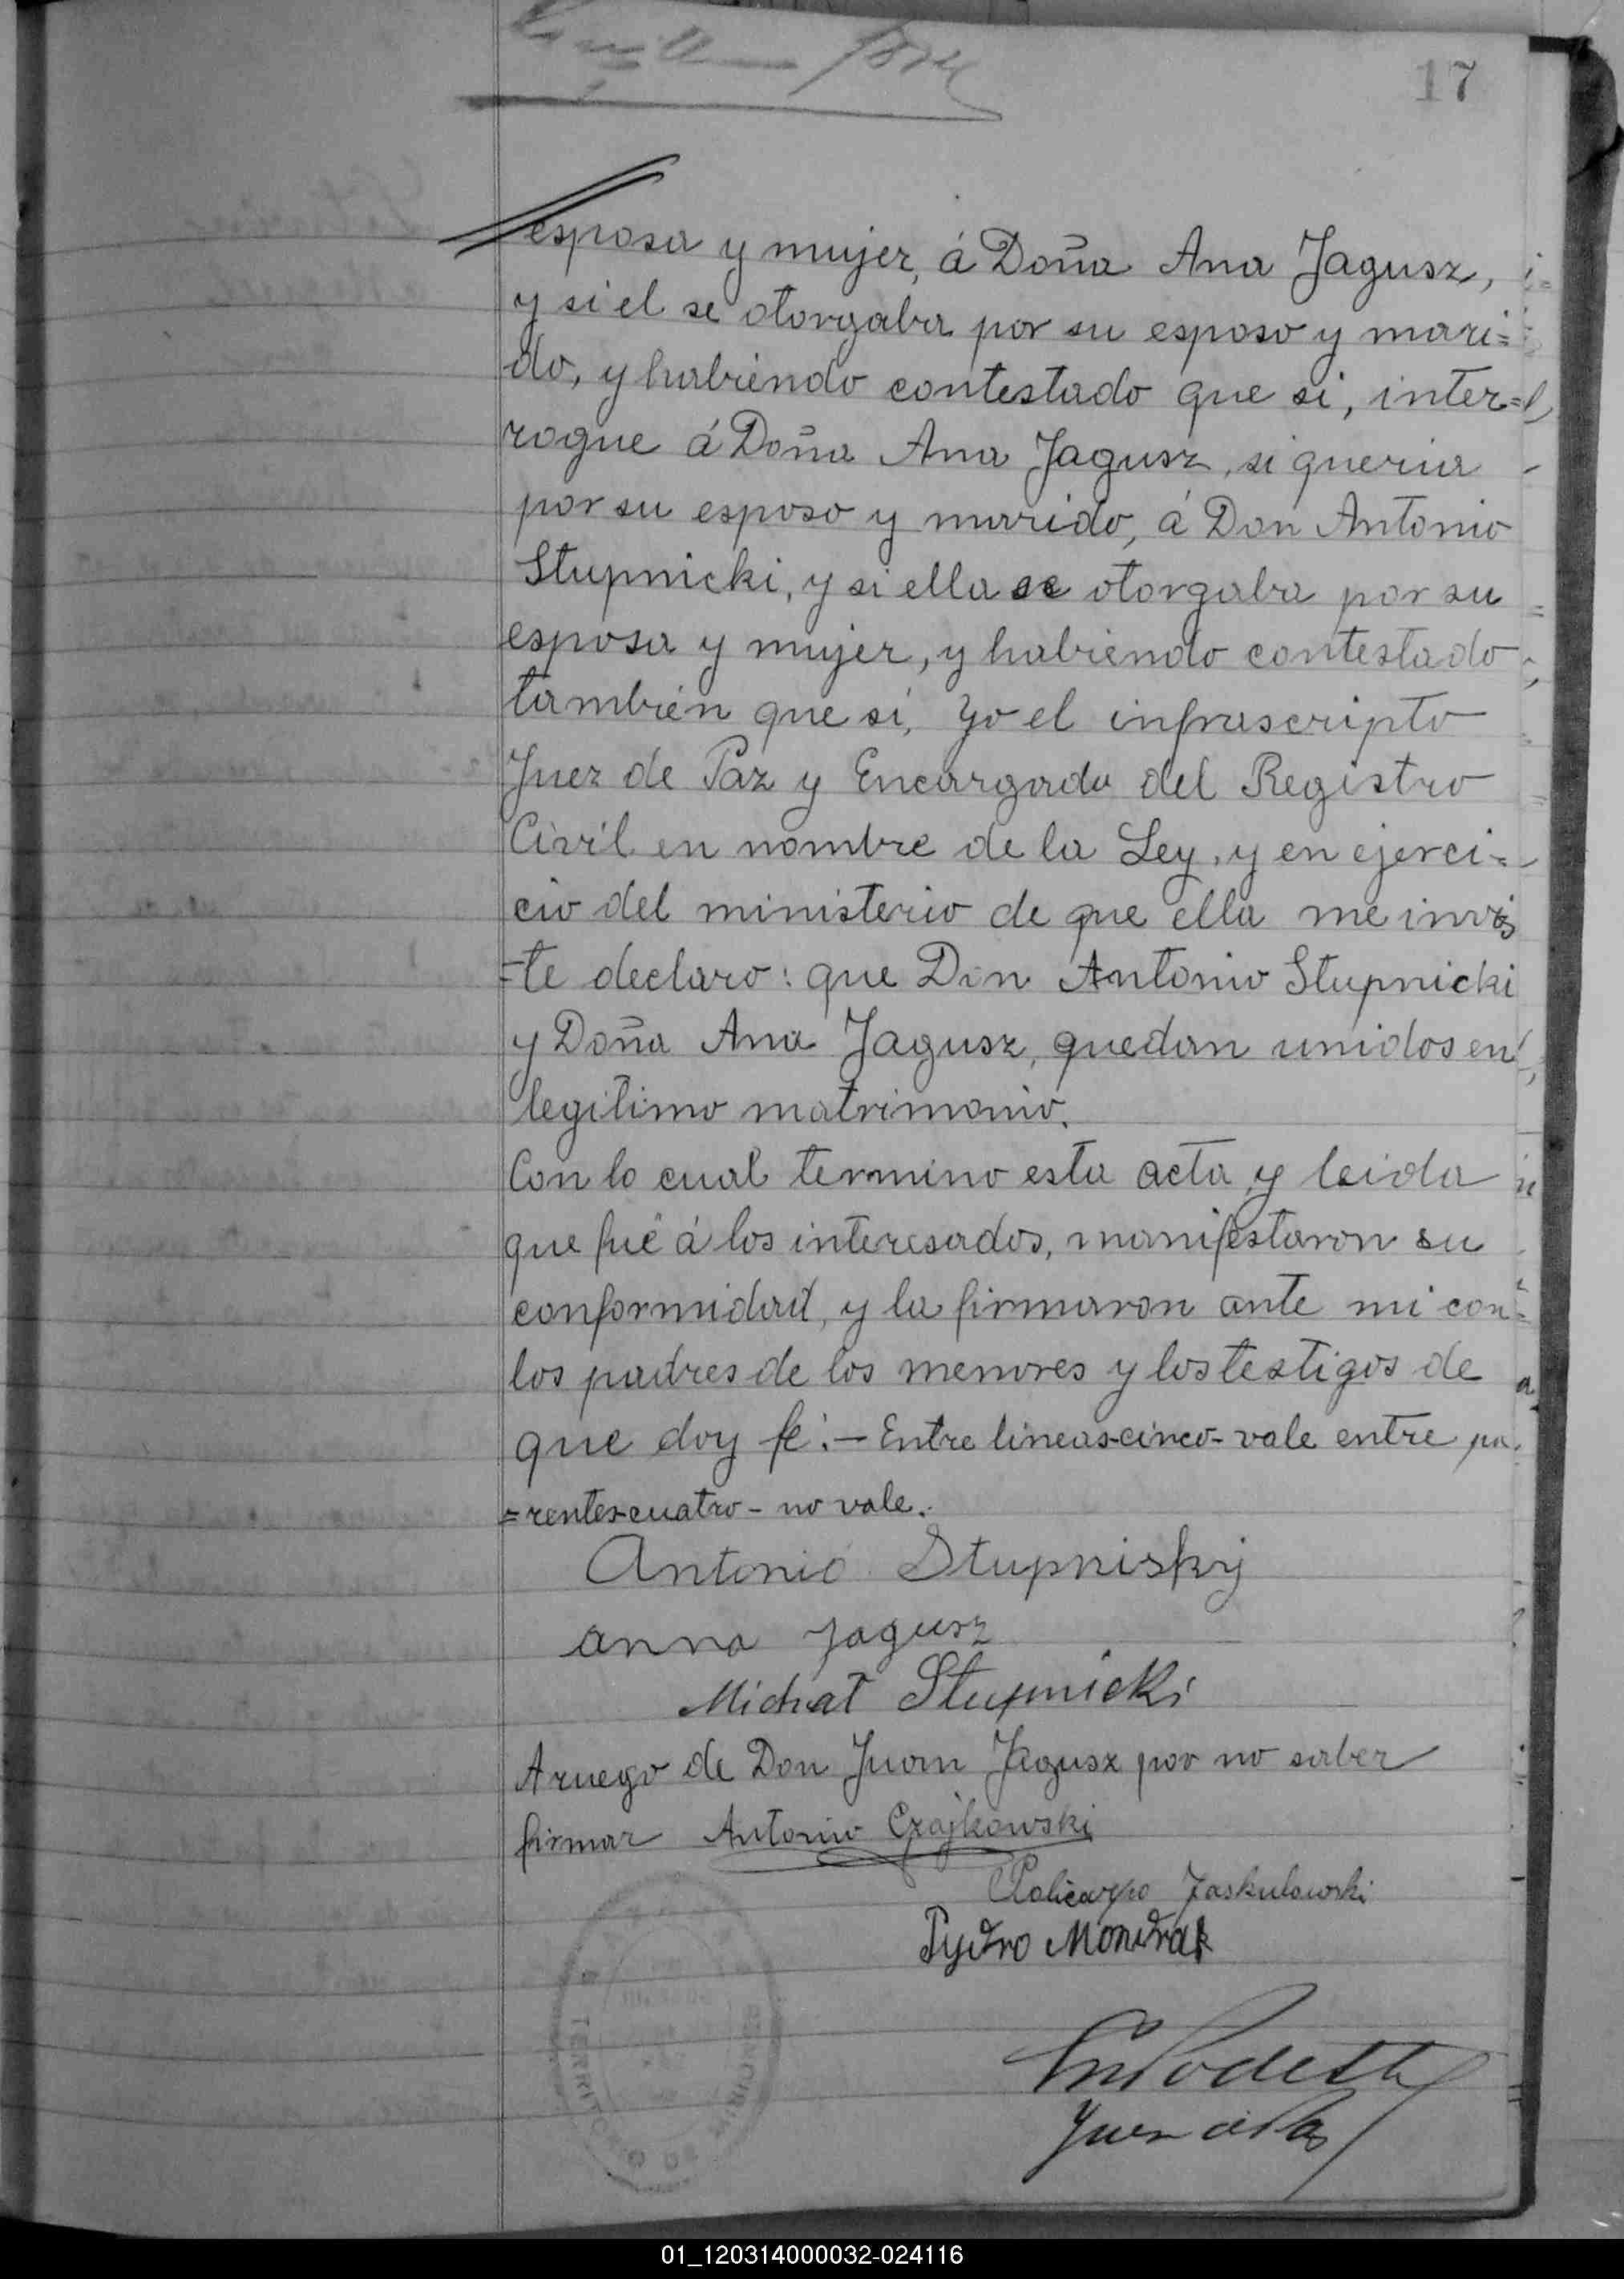 17
esposa y mujer, á Doña Ana Jagusz,
y si el se otorgaba por su esposo y mari=
do, y habiendo contestado que si, inter=
rogue á Doña Ana Jagusz, si queria
por su esposo y marido, á Don Antonio
Stupnicki, y si ella se otorgaba por su
esposa y mujer, y habiendo contestado
también que si, Yo el infrascripto
Juez de Paz y Encargado del Registro
Civil en nombre de la Ley, y en ejerci=
cio del ministerio de que ella me invis
=te declaro: que Don Antonio Stupnicki
y Doña Ana Jagusz, quedan unidos en
legitimo matrimonio.
Con lo cual termino esta acta y leida
que fué á los interesados, manifestaron su
conformidad, y la firmaron ante mi con
los padres de los menores y los testigos de
que doy fé:- Entre lineas-cinco-vale entre pa
=rentes-cuatro-no vale.
Antonio Stupniskij
anna Jagusz
Michał Stupnicki
A ruego de Don Juan Jagusz por no saber
firmar Antonio Czajkowski
Policarpo Jaskulowski
Pydro Mondrak
Podestá
Juez de Paz
TERRITO
01_120314000032-024116